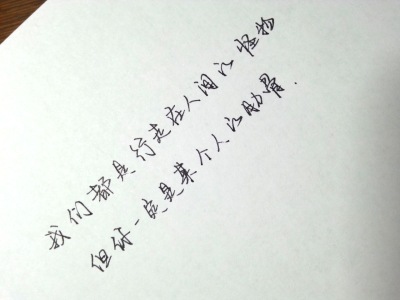 我们都是行走在人间的怪物
但你一定是某个人的肋骨.